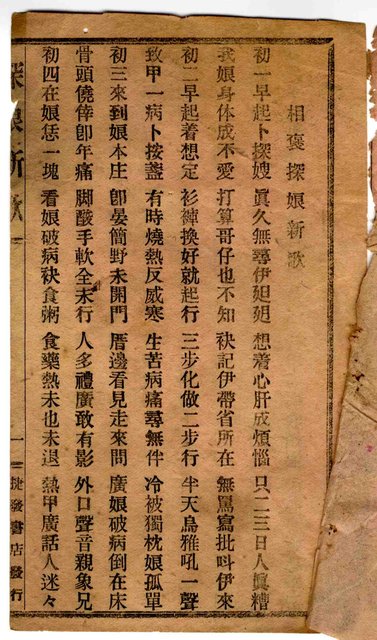 相褒探娘新歌
初一早起卜探嫂 真久無尋伊𨑨迌 想着心肝成煩惱 只二三日人真糟
我娘身体成不愛 打算哥仔也不知 袂記伊帶省所在 無罵寫批呌伊來
初二早起着想定 衫褲換好就起行 三步化做二步行 半天鳥雅吼一聲
致甲一病卜按盞 有時燒熱反威寒 生苦病痛尋無伴 冷被獨枕娘孤單
初三來到娘本庄 卽晏簡野未開門 厝邊看見走來問 廣娘破病倒在床
骨頭僥倖卽年痛 脚酸手軟全未行 人多禮廣敢有影 外口聲音親象兄
初四在娘恁一塊 看娘破病袂食粥 食藥熱未也未退 熱甲廣話人迷々
探娘新歌
一
捷發書店發行